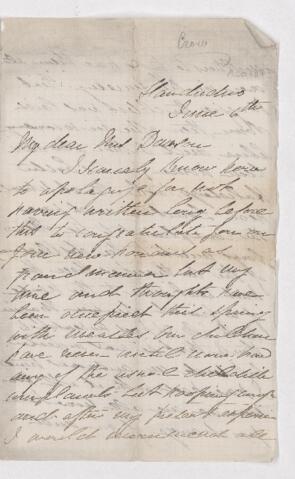 Crowe
Llandudno
June 6th
My dear Mrs Dawson
I scarcely know how
to apologise for not
having written long before
this to congratulate you on
your new honours as
grandmamma but my
time and thoughts have
been occupied this spring
with measles our children
have never until now had
any of the usual childish
complaints but hooping cough
and after my present experience
I would recommend all